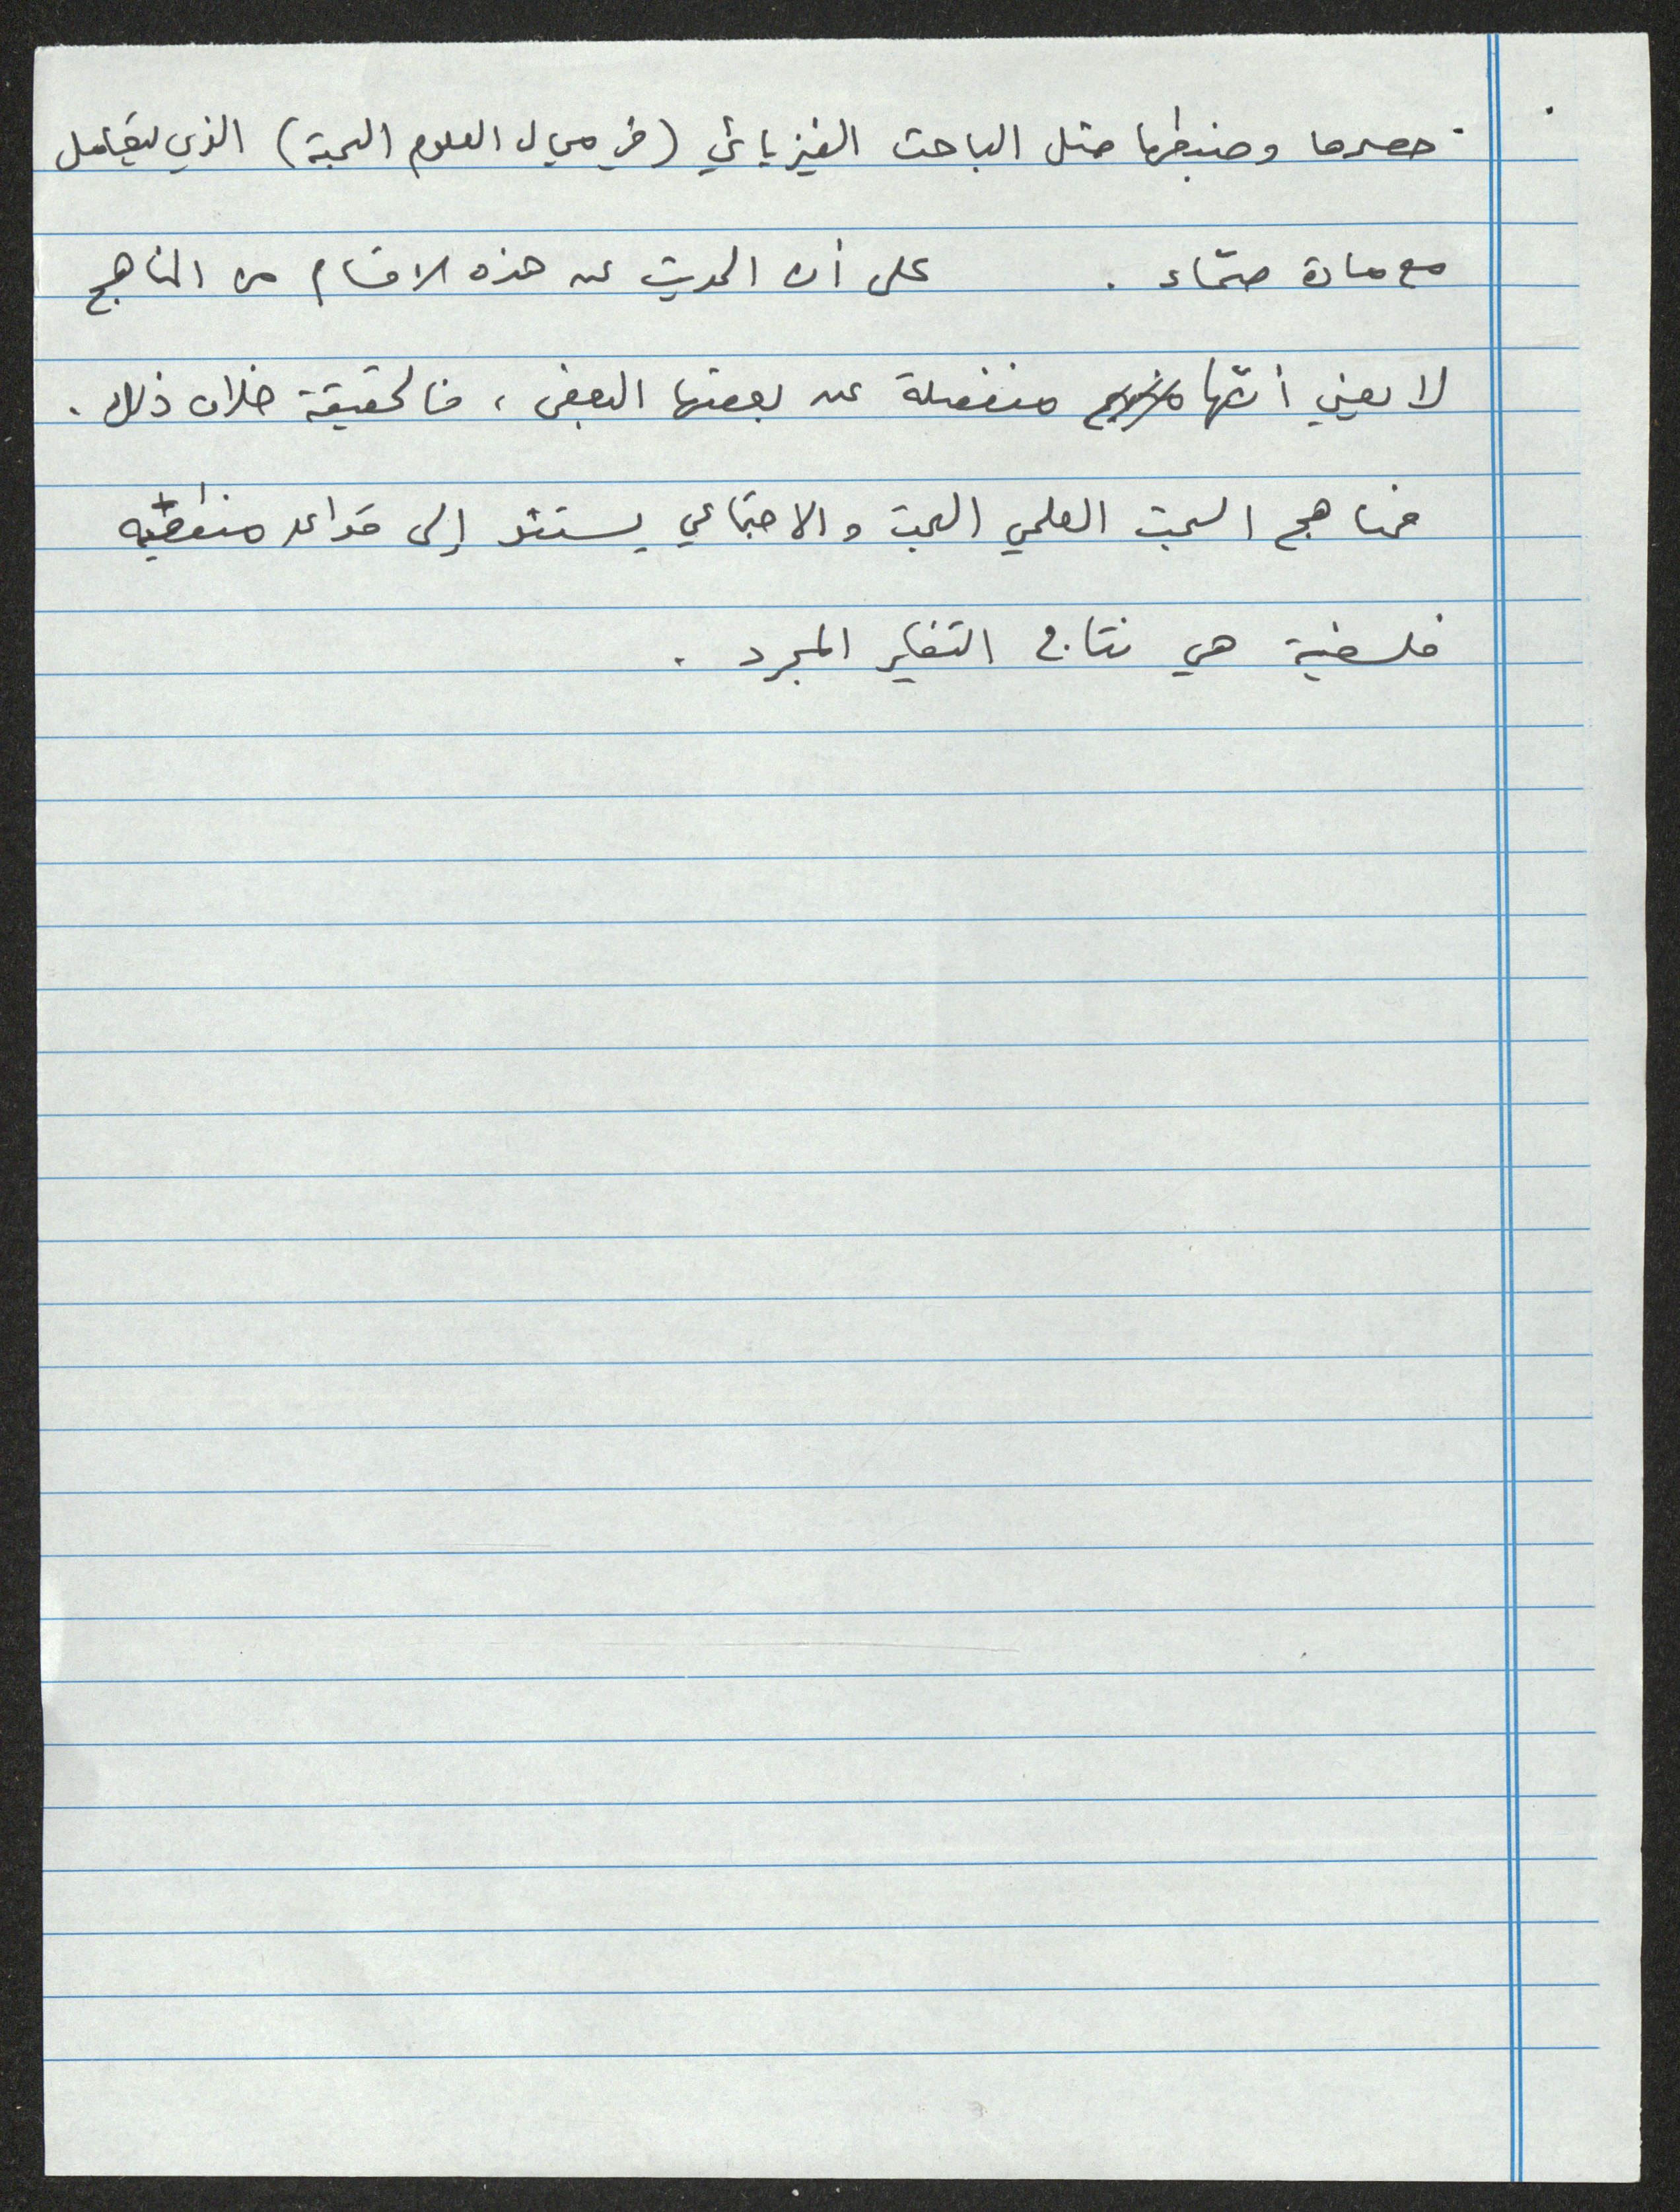 حصرها وضبطها مثل الباحث الفيزيائي (في مجال العلوم البحتة) الذي يتعامل
مع مادة صمّاء . على أن الحديث عن هذه الاقسام من المناهج
لا يعني أنّها منفصلة عن بعضها البعض ، فالحقيقة خلاف ذلك .
فمناهج البحث العلمي البحت والاجتماعي يستند إلى قواعد منطقيه
فلسفية هي نتاج التفكير المجرد .